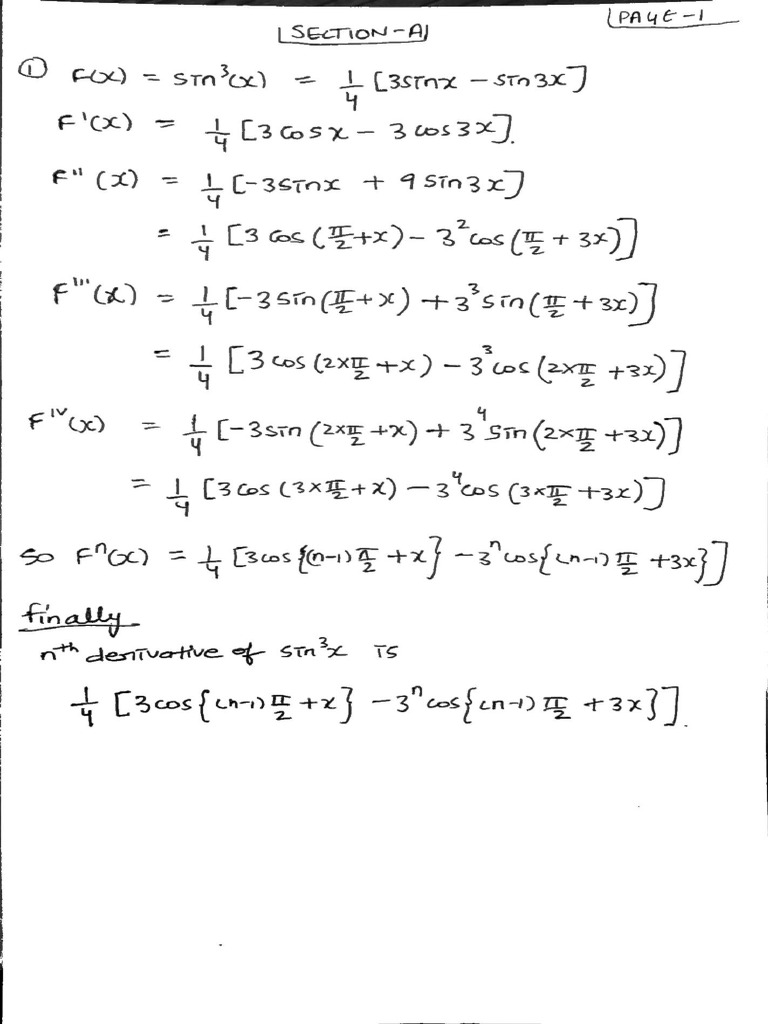 PAGE-1
SECTION-A
① F(x) = sin³(x) = 1/4 [3sinx - sin3x]
F'(x) = 1/4 [3cosx - 3cos3x].
F''(x) = 1/4 [-3sinx + 9sin3x]
= 1/4 [3cos(π/2+x) - 3²cos(π/2+3x)]
F'''(x) = 1/4 [-3sin(π/2+x) + 3³sin(π/2+3x)]
= 1/4 [3cos(2×π/2+x) - 3³cos(2×π/2+3x)]
F^IV(x) = 1/4 [-3sin(2×π/2+x) + 3⁴sin(2×π/2+3x)]
= 1/4 [3cos(3×π/2+x) - 3⁴cos(3×π/2+3x)]
so Fⁿ(x) = 1/4 [3cos{(n-1)π/2+x} - 3ⁿcos{(n-1)π/2+3x}]
finally
nth derivative of sin³x is
1/4 [3cos{(n-1)π/2+x} - 3ⁿcos{(n-1)π/2+3x}].